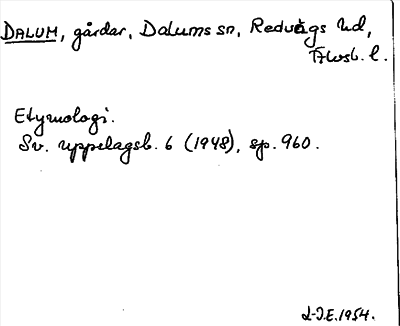 DALUM, gårdar, Dalums sn, Redvägs hd,
Älvsb. l.
Etymologi.
Sv. uppslagsb. 6 (1948), sp. 960.
L-I.E. 1954.